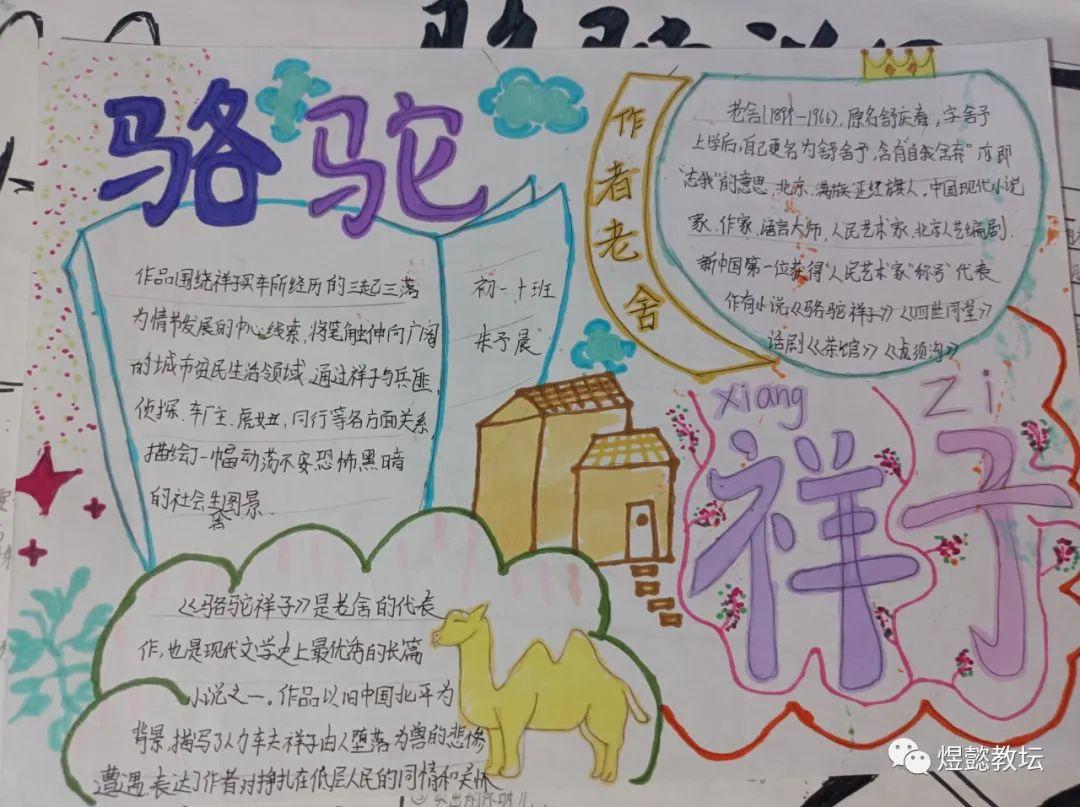 骆驼
作品围绕祥子买车所经历的三起三落
为情节发展的中心线索,将笔触伸向广阔
的城市贫民生活领域,通过祥子与兵匪,
侦探、车厂主、虎妞、同行等各方面关系,
描绘了一幅动荡不安恐怖黑暗
的社会生图景.
初一十班
朱予晨
作者老舍
老舍(1899-1966),原名舒庆春,字舍予
上学后,自己更名为舒舍予,含有"自我舍弃"亦即
"忘我"的意思,北京、满族正红旗人,中国现代小说
家、作家,语言大师,人民艺术家,北京人艺编剧,
新中国第一位获得"人民艺术家"称号"代表
作有小说《骆驼祥子》《四世同堂》
话剧《茶馆》《龙须沟》
xiang zi
祥子
《骆驼祥子》是老舍的代表
作,也是现代文学史上最优秀的长篇
小说之一。作品以旧中国北平为
背景,描写了人力车夫祥子由人堕落为兽的悲惨
遭遇,表达了作者对挣扎在低层人民的同情和关怀
煜懿教坛